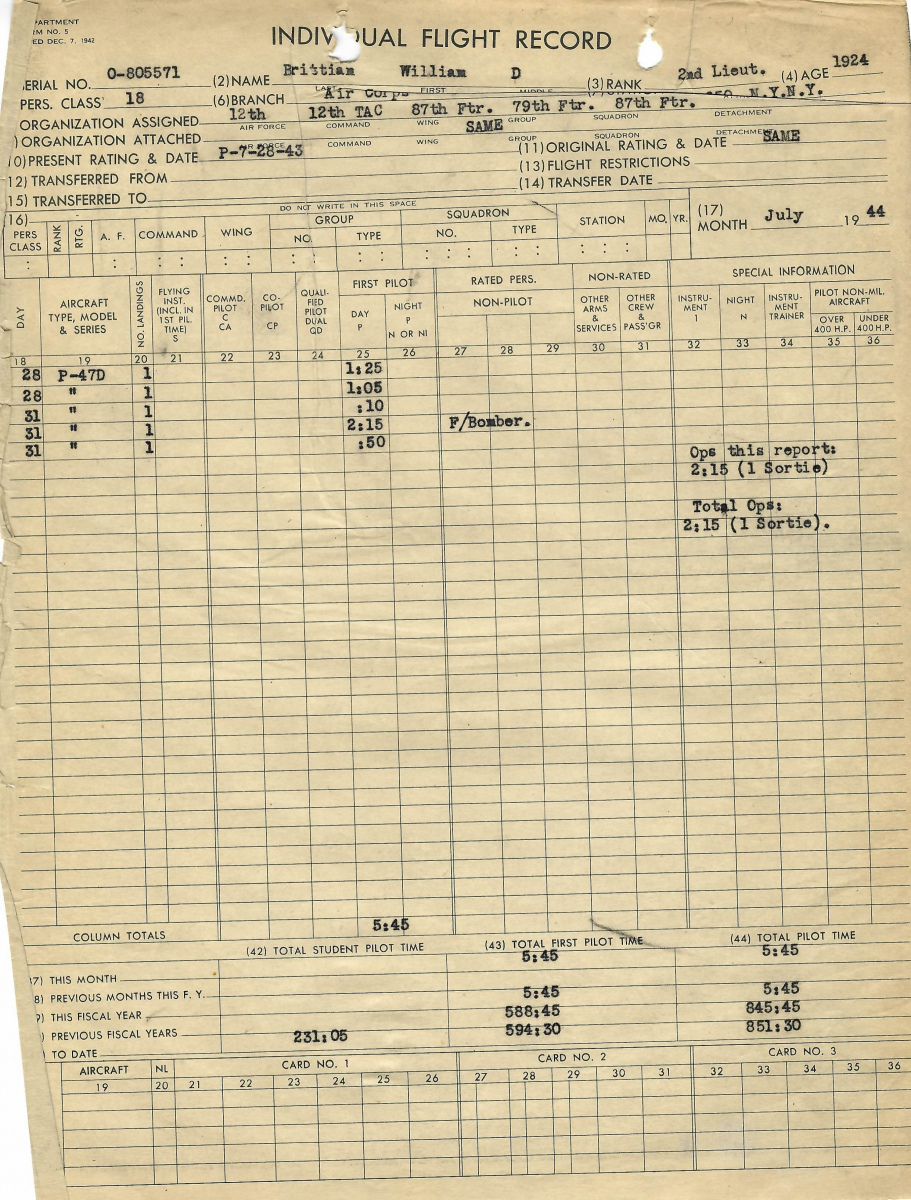 PARTMENT
RM NO. 5
ED DEC. 7, 1942
INDIV UAL FLIGHT RECORD
ERIAL NO. O-805571 (2) NAME Brittian William D (3) RANK 2nd Lieut. (4) AGE 1924
LAST FIRST MIDDLE
PERS. CLASS 18 (6) BRANCH Air Corps N.Y.N.Y.
ORGANIZATION ASSIGNED 12th 12th TAC 87th Ftr. 79th Ftr. 87th Ftr.
AIR FORCE COMMAND WING GROUP SQUADRON DETACHMENT
) ORGANIZATION ATTACHED SAME
COMMAND WING GROUP SQUADRON DETACHMENT
0) PRESENT RATING & DATE P-7-28-43 (11) ORIGINAL RATING & DATE SAME
12) TRANSFERRED FROM (13) FLIGHT RESTRICTIONS
15) TRANSFERRED TO (14) TRANSFER DATE
DO NOT WRITE IN THIS SPACE
16) GROUP SQUADRON (17)
PERS CLASS RANK RTG. A. F. COMMAND WING NO. TYPE NO. TYPE STATION MO. YR. MONTH July 19 44
DAY AIRCRAFT TYPE, MODEL & SERIES NO. LANDINGS FLYING INST. (INCL. IN 1ST PIL. TIME) S COMMD. PILOT C CA CO-PILOT CP QUALI-FIED PILOT DUAL QD FIRST PILOT DAY P NIGHT P N OR NI RATED PERS. NON-PILOT NON-RATED OTHER ARMS & SERVICES OTHER CREW & PASS'GR SPECIAL INFORMATION INSTRU-MENT I NIGHT N INSTRU-MENT TRAINER PILOT NON-MIL. AIRCRAFT OVER 400 H.P. UNDER 400 H.P.
18 19 20 21 22 23 24 25 26 27 28 29 30 31 32 33 34 35 36
28 P-47D 1 1:25
28 " 1 1:05
31 " 1 :10
31 " 1 2:15 F/Bomber.
31 " 1 :50
Ops this report:
2:15 (1 Sortie)
Total Ops:
2:15 (1 Sortie).
COLUMN TOTALS 5:45
(42) TOTAL STUDENT PILOT TIME (43) TOTAL FIRST PILOT TIME (44) TOTAL PILOT TIME
7) THIS MONTH 5:45 5:45
8) PREVIOUS MONTHS THIS F. Y.
9) THIS FISCAL YEAR 5:45 5:45
) PREVIOUS FISCAL YEARS 588:45 845:45
) TO DATE 231:05 594:30 851:30
AIRCRAFT NL CARD NO. 1 CARD NO. 2 CARD NO. 3
19 20 21 22 23 24 25 26 27 28 29 30 31 32 33 34 35 36